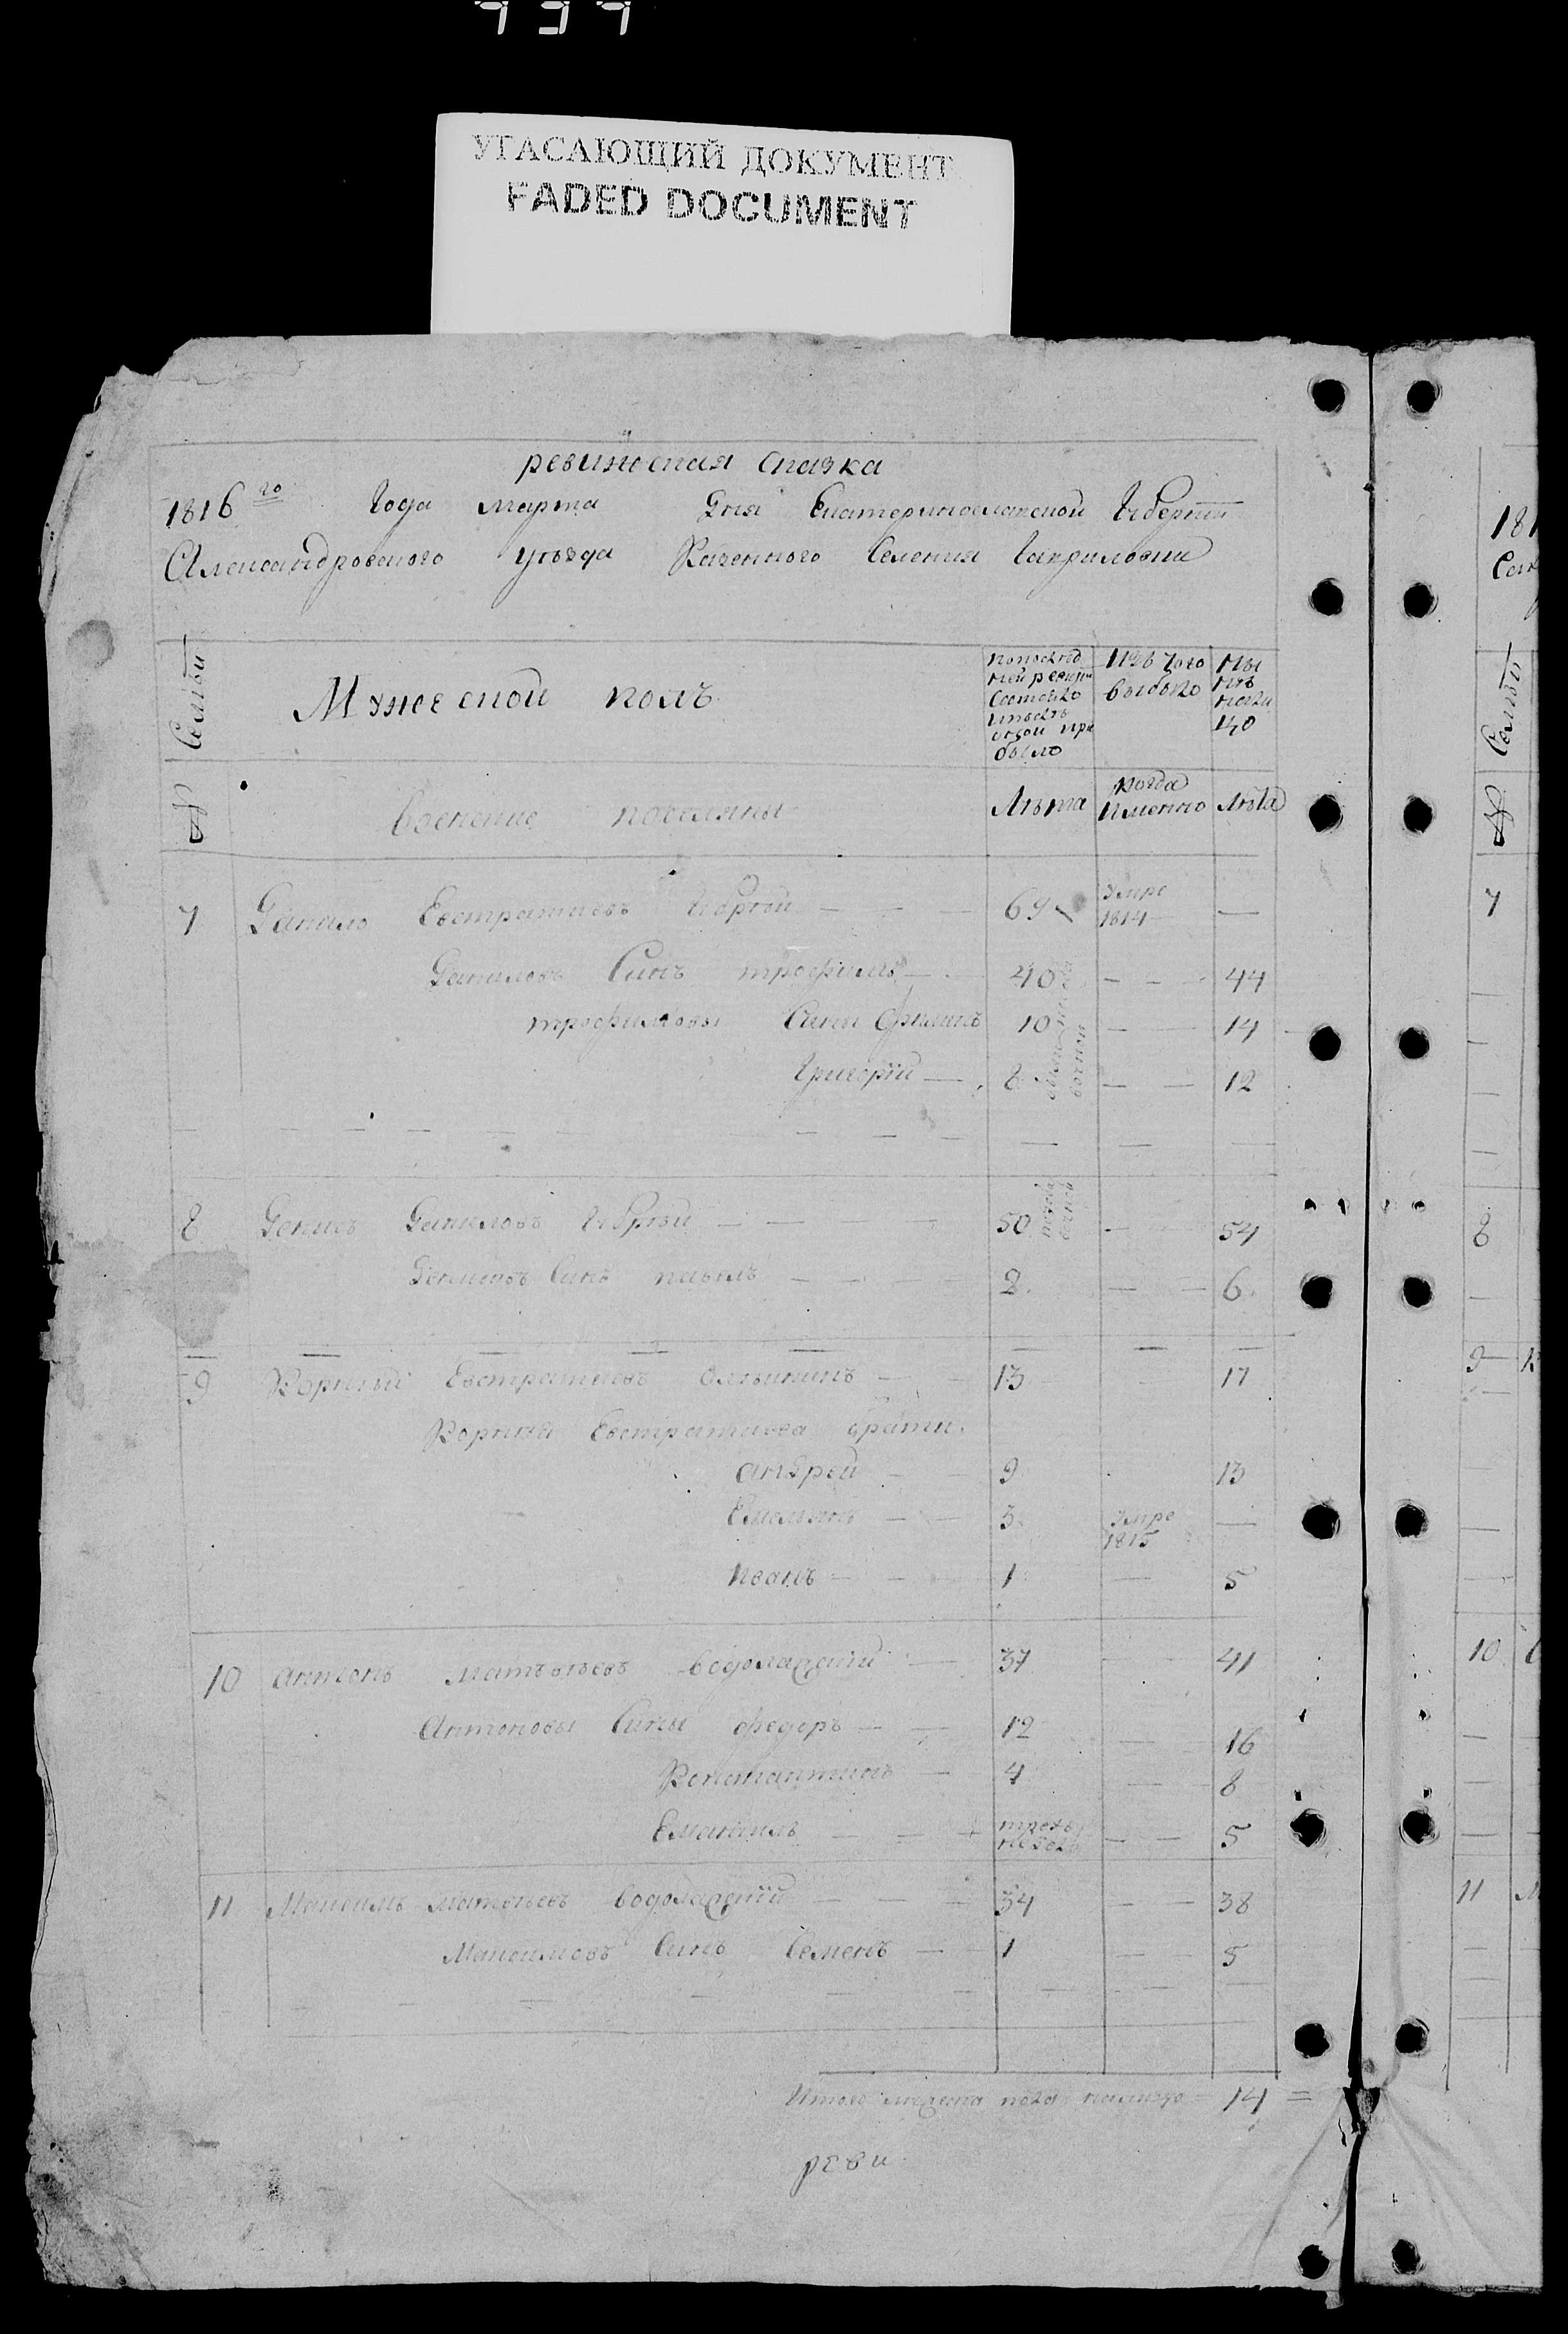 УГАСАЮЩИЙ ДОКУМЕНТ
FADED DOCUMENT
ревижская сказка
1816го Года марта Дня Екатеринославской Губернии
Александровского уезда Казенного Селения Гавриловки
Семьи
Мужеской полъ
попослед
ней ревизи
состояло
и после
оной при
было
Изъ того
выбыло
ны
нѣ
нали
цо
№
Воення поселяны
Лѣта
когда
Именно
Лѣта
7 Данило Евстратиевъ 69 умре 1814 —
Даниловъ Синъ трофимъ — 40 — — 44
трофимовы Сини Филипъ 10 — 14
Григорій — 8 — — 12
8 Денисъ Даниловъ — — 50 — 54
Денисовъ Синъ павелъ — — 2 — — 6
9 Корнѣй Евстратиевъ Олѣйникъ — 13 — 17
Корнея Евстратиева брати
андрей — 9 13
Емельянъ — — 3 умре 1815 —
Иванъ — — 1 — 5
10 антонъ матвѣевъ водолажскій — 37 — 41
Антоновы Сины федоръ — — 12 — 16
Константинъ — 4 — 8
Емануилъ — — — 5
11 Максимъ матвѣевъ водолажскій — — 34 — — 38
Максимовъ Синъ Семенъ — — 1 — 5
Итого мужеска пола налицо = 14 =
реви
181
7
8
9
10
11